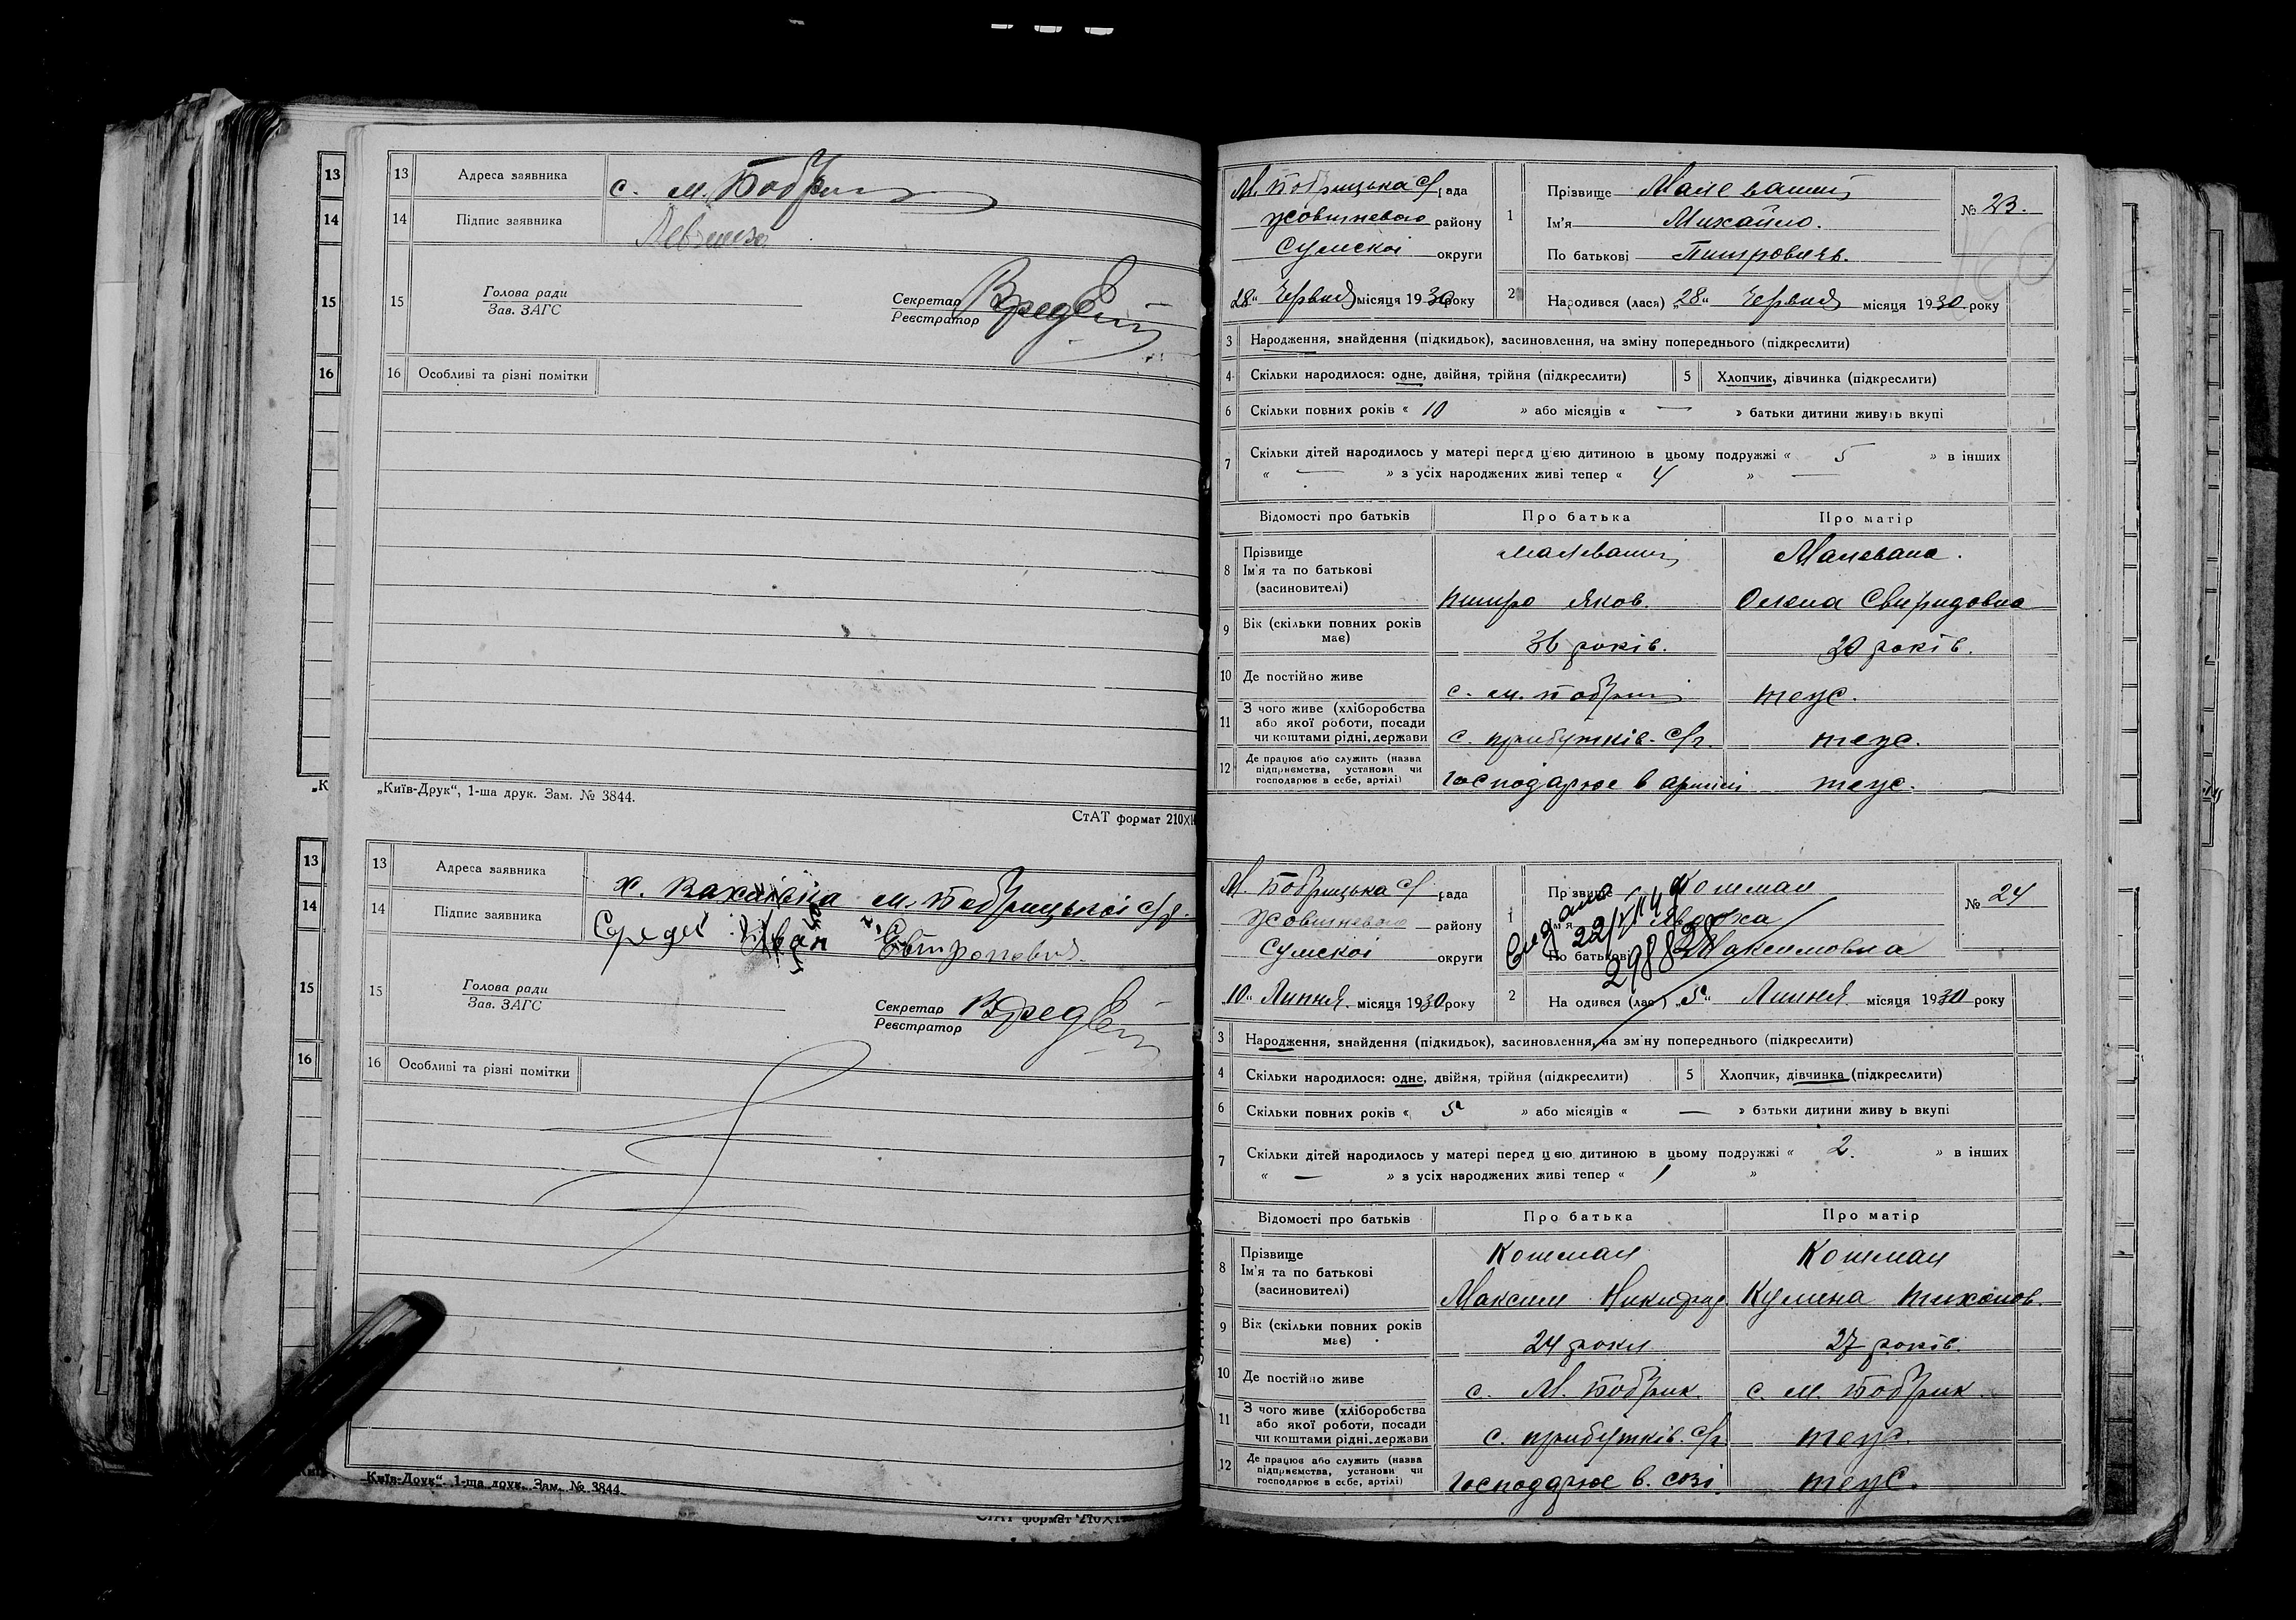 13 Адреса заявника с. м. Бобрик
14 Підпис заявника
15 Голова ради
Зав. ЗАГС
Секретар
Реєстратор
16 Особливі та різні помітки
„Київ-Друк“, 1-ша друк. Зам. № 3844.
СтАТ формат 210Х
13 Адреса заявника х. м. Бобрицької с/р.
14 Підпис заявника Середа Іван
15 Голова ради
Зав. ЗАГС
Секретар
Реєстратор
16 Особливі та різні помітки
„Київ-Друк“, 1-ша друк. Зам. № 3844.
СтАТ формат 210Х
М. Бобрицька с/рада
Жовтневого району
Сумскої округи
„28“ Червня місяця 1930 року
1 Прізвище Малеваний
Ім'я Михайло.
По батькові Питрович.
№ 23.
2 Народився (лася) „28“ Червня місяця 1930 року
3 Народження, знайдення (підкидьок), засиновлення, на зміну попереднього (підкреслити)
4 Скільки народилося: одне, двійня, трійня (підкреслити) 5 Хлопчик, дівчинка (підкреслити)
6 Скільки повних років « 10 » або місяців « — » батьки дитини живуть вкупі
7 Скільки дітей народилось у матері перед цією дитиною в цьому подружжі « 5 » в інших
« — » з усіх народжених живі тепер « 4 » —
Відомості про батьків Про батька Про матір
8 Прізвище Малеваний Малевана.
Ім'я та по батькові
(засиновителі) Питро Яков. Олена Свиридовна
9 Вік (скільки повних років має) 36 років. 30 років.
10 Де постійно живе с. м. Бобрик теж.
11 З чого живе (хліборобства
або якої роботи, посади
чи коштами рідні, держави с. прибутків с/г. теж.
12 Де працює або служить (назва
підприємства, установи чи
господарює в себе, артілі) Господарює в артілі теж.
М. Бобрицька с/рада
Жовтневого району
Сумскої округи
„10“ Липня місяця 1930 року
1 Прізвище Кошман
Ім'я Явдоха
По батькові Максимовна
№ 24
29882
2 Народився (лася) „5“ Липня місяця 1930 року
3 Народження, знайдення (підкидьок), засиновлення, на зміну попереднього (підкреслити)
4 Скільки народилося: одне, двійня, трійня (підкреслити) 5 Хлопчик, дівчинка (підкреслити)
6 Скільки повних років « 5 » або місяців « — » батьки дитини живуть вкупі
7 Скільки дітей народилось у матері перед цією дитиною в цьому подружжі « 2. » в інших
« — » з усіх народжених живі тепер « 1 »
Відомості про батьків Про батька Про матір
8 Прізвище Кошман Кошман
Ім'я та по батькові
(засиновителі) Максим Никифор. Кулина Тихонов.
9 Вік (скільки повних років має) 24 роки 27 років.
10 Де постійно живе с. М. Бобрик с. м. Бобрик
11 З чого живе (хліборобства
або якої роботи, посади
чи коштами рідні, держави с. прибутків. с/г теж.
12 Де працює або служить (назва
підприємства, установи чи
господарює в себе, артілі) Господарює в. созі. теж.